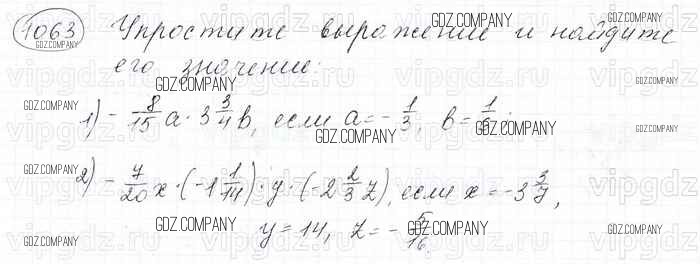 1063 Упростите выражение и найдите
его значение:
1) - 8/15 a · 3 3/4 b, если a = - 1/3, b = 1/6.
2) - 7/20 x · (-1 1/14) · y · (-2 2/3 z), если x = -3 3/7,
y = 14, z = - 5/16.
GDZ.COMPANY
vipgdz.ru